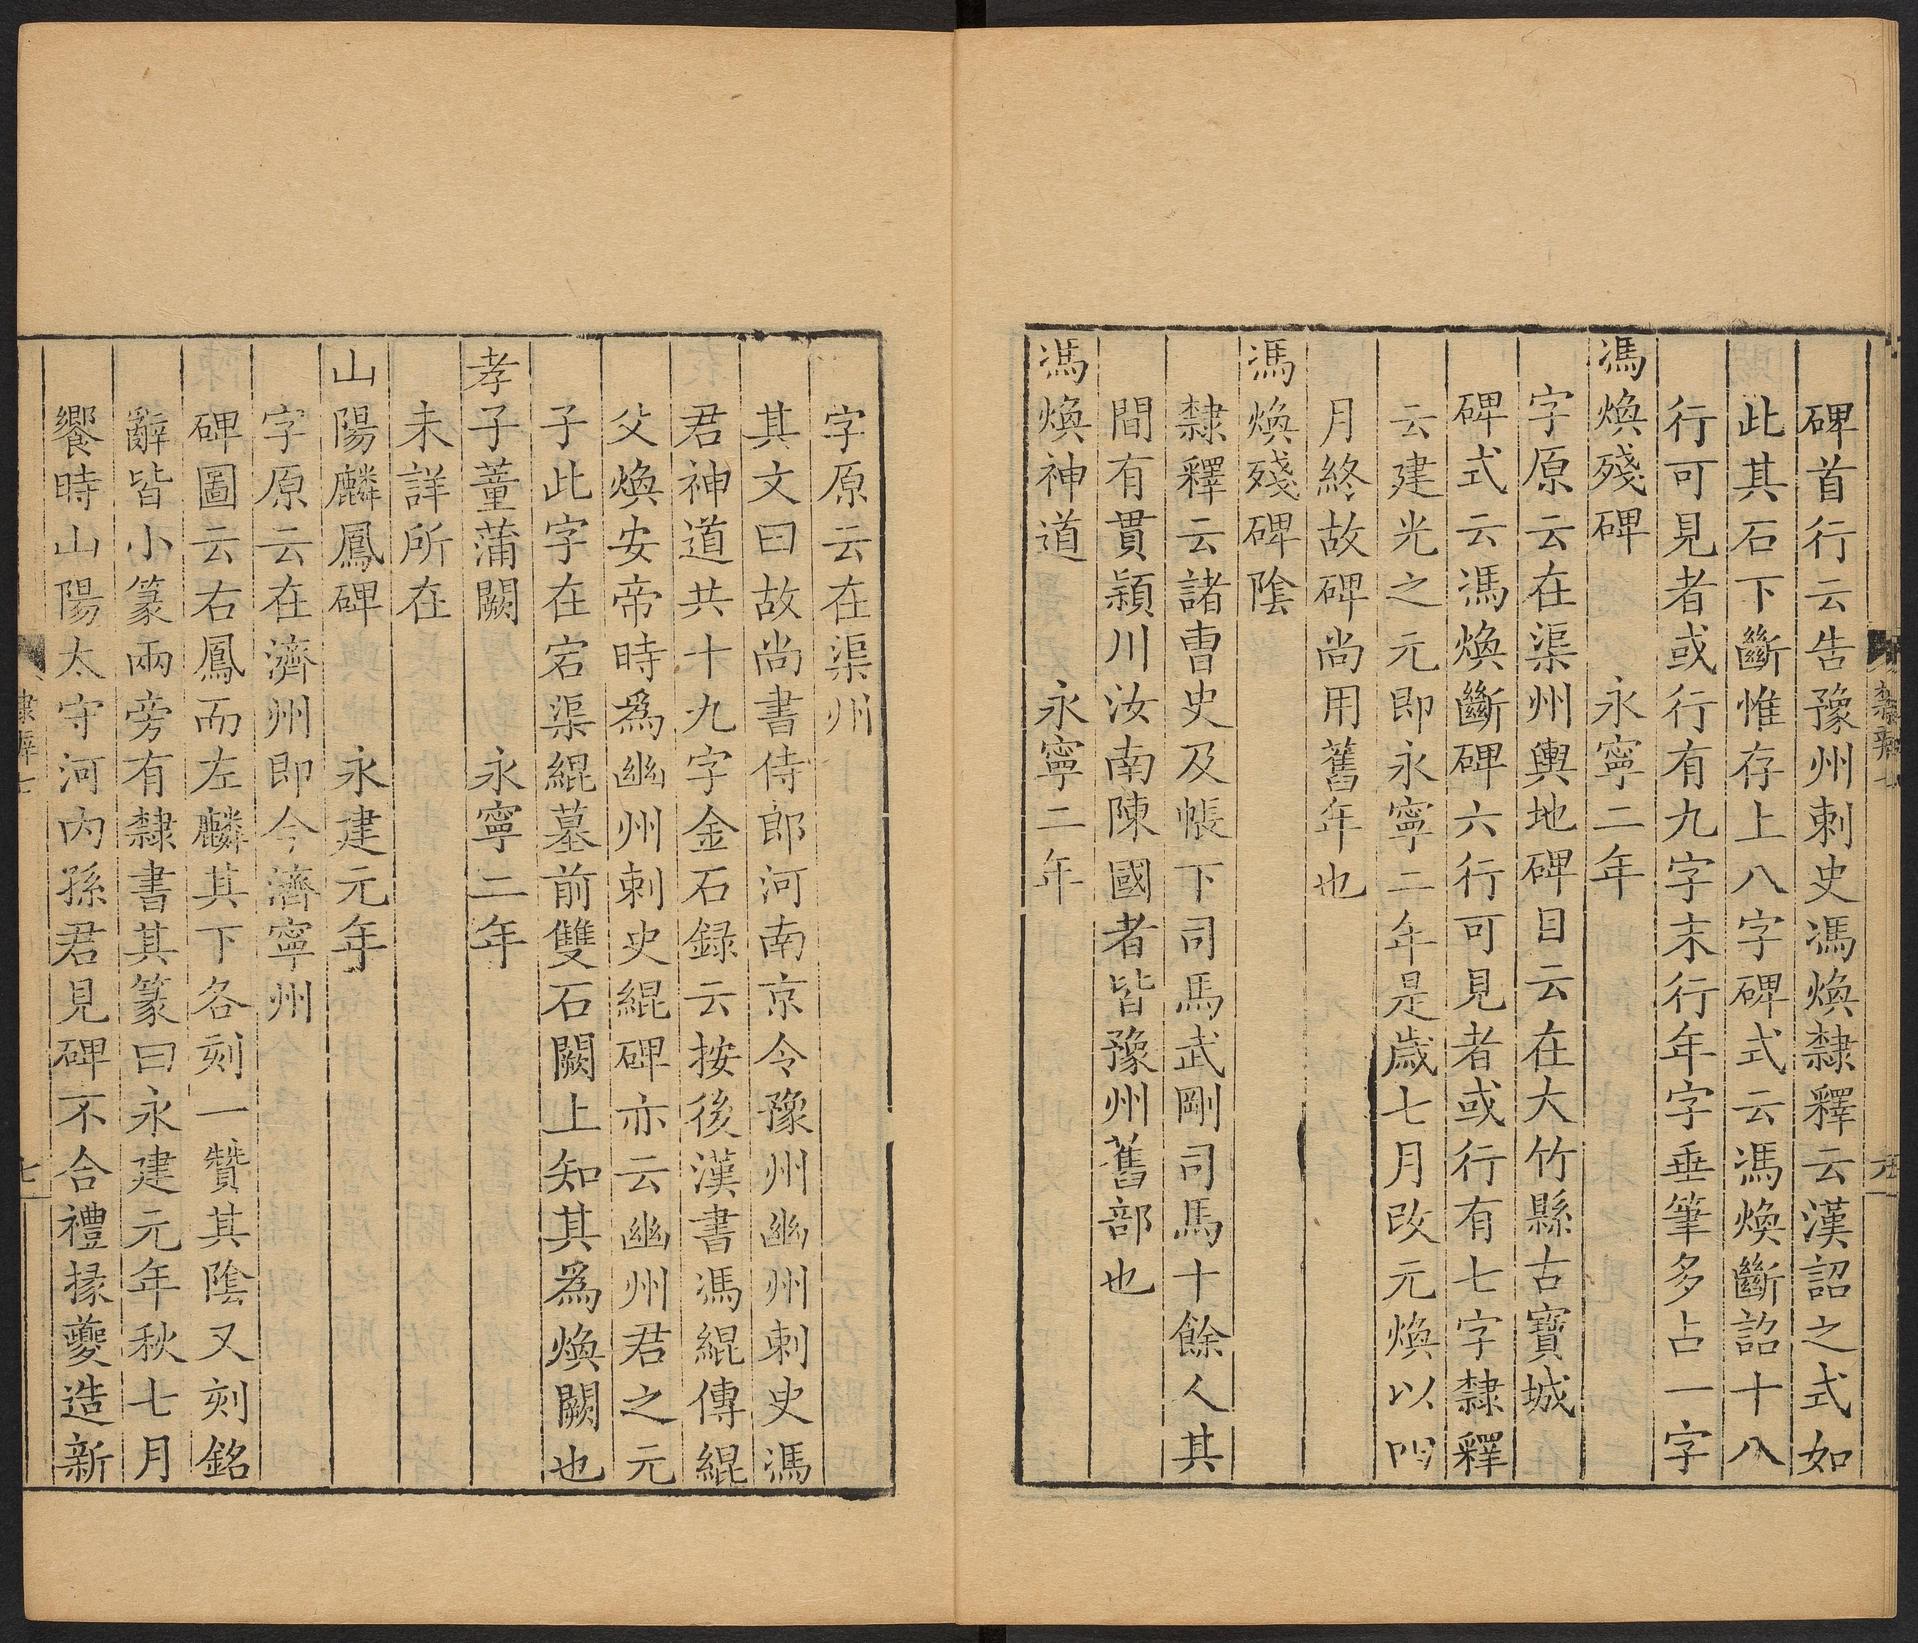 碑首行云告豫州刺史馮煥隸釋云漢詔之式如
此其石下斷惟存上八字碑式云馮煥斷詔十八
行可見者或行有九字末行年字垂筆多占一字
馮煥殘碑　永寧二年
字原云在渠州輿地碑目云在大竹縣古寶城
碑式云馮煥斷碑六行可見者或行有七字隸釋
云建光之元即永寧二年是歲七月改元煥以四
月終故碑尚用舊年也
馮煥殘碑陰
隸釋云諸曹史及帳下司馬武剛司馬十餘人其
間有貫潁川汝南陳國者皆豫州舊部也
馮煥神道　永寧二年
字原云在渠州
其文曰故尚書侍郎河南京令豫州幽州刺史馮
君神道共十九字金石録云按後漢書馮緄傳緄
父煥安帝時爲幽州刺史緄碑亦云幽州君之元
子此字在宕渠緄墓前雙石闕上知其爲煥闕也
孝子董蒲闕　永寧二年
未詳所在
山陽麟鳳碑　永建元年
字原云在濟州即今濟寧州
碑圖云右鳳而左麟其下各刻一贊其陰又刻銘
辭皆小篆兩旁有隸書其篆曰永建元年秋七月
饗時山陽太守河內孫君見碑不合禮掾夔造新
七